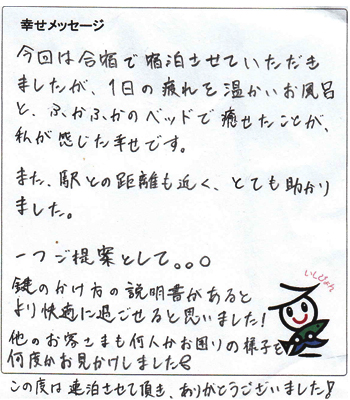 幸せメッセージ
今回は合宿で宿泊させていただき
ましたが、1日の疲れを温かいお風呂
と、ふかふかのベッドで癒せたことが、
私が感じた幸せです。
また、駅との距離も近く、とても助かり
ました。
一つご提案として。。。
鍵のかけ方の説明書があると
より快適に過ごせると思いました!
他のお客さまも何人かお困りの様子を
何度かお見かけしました
この度は連泊させて頂き、ありがとうございました!